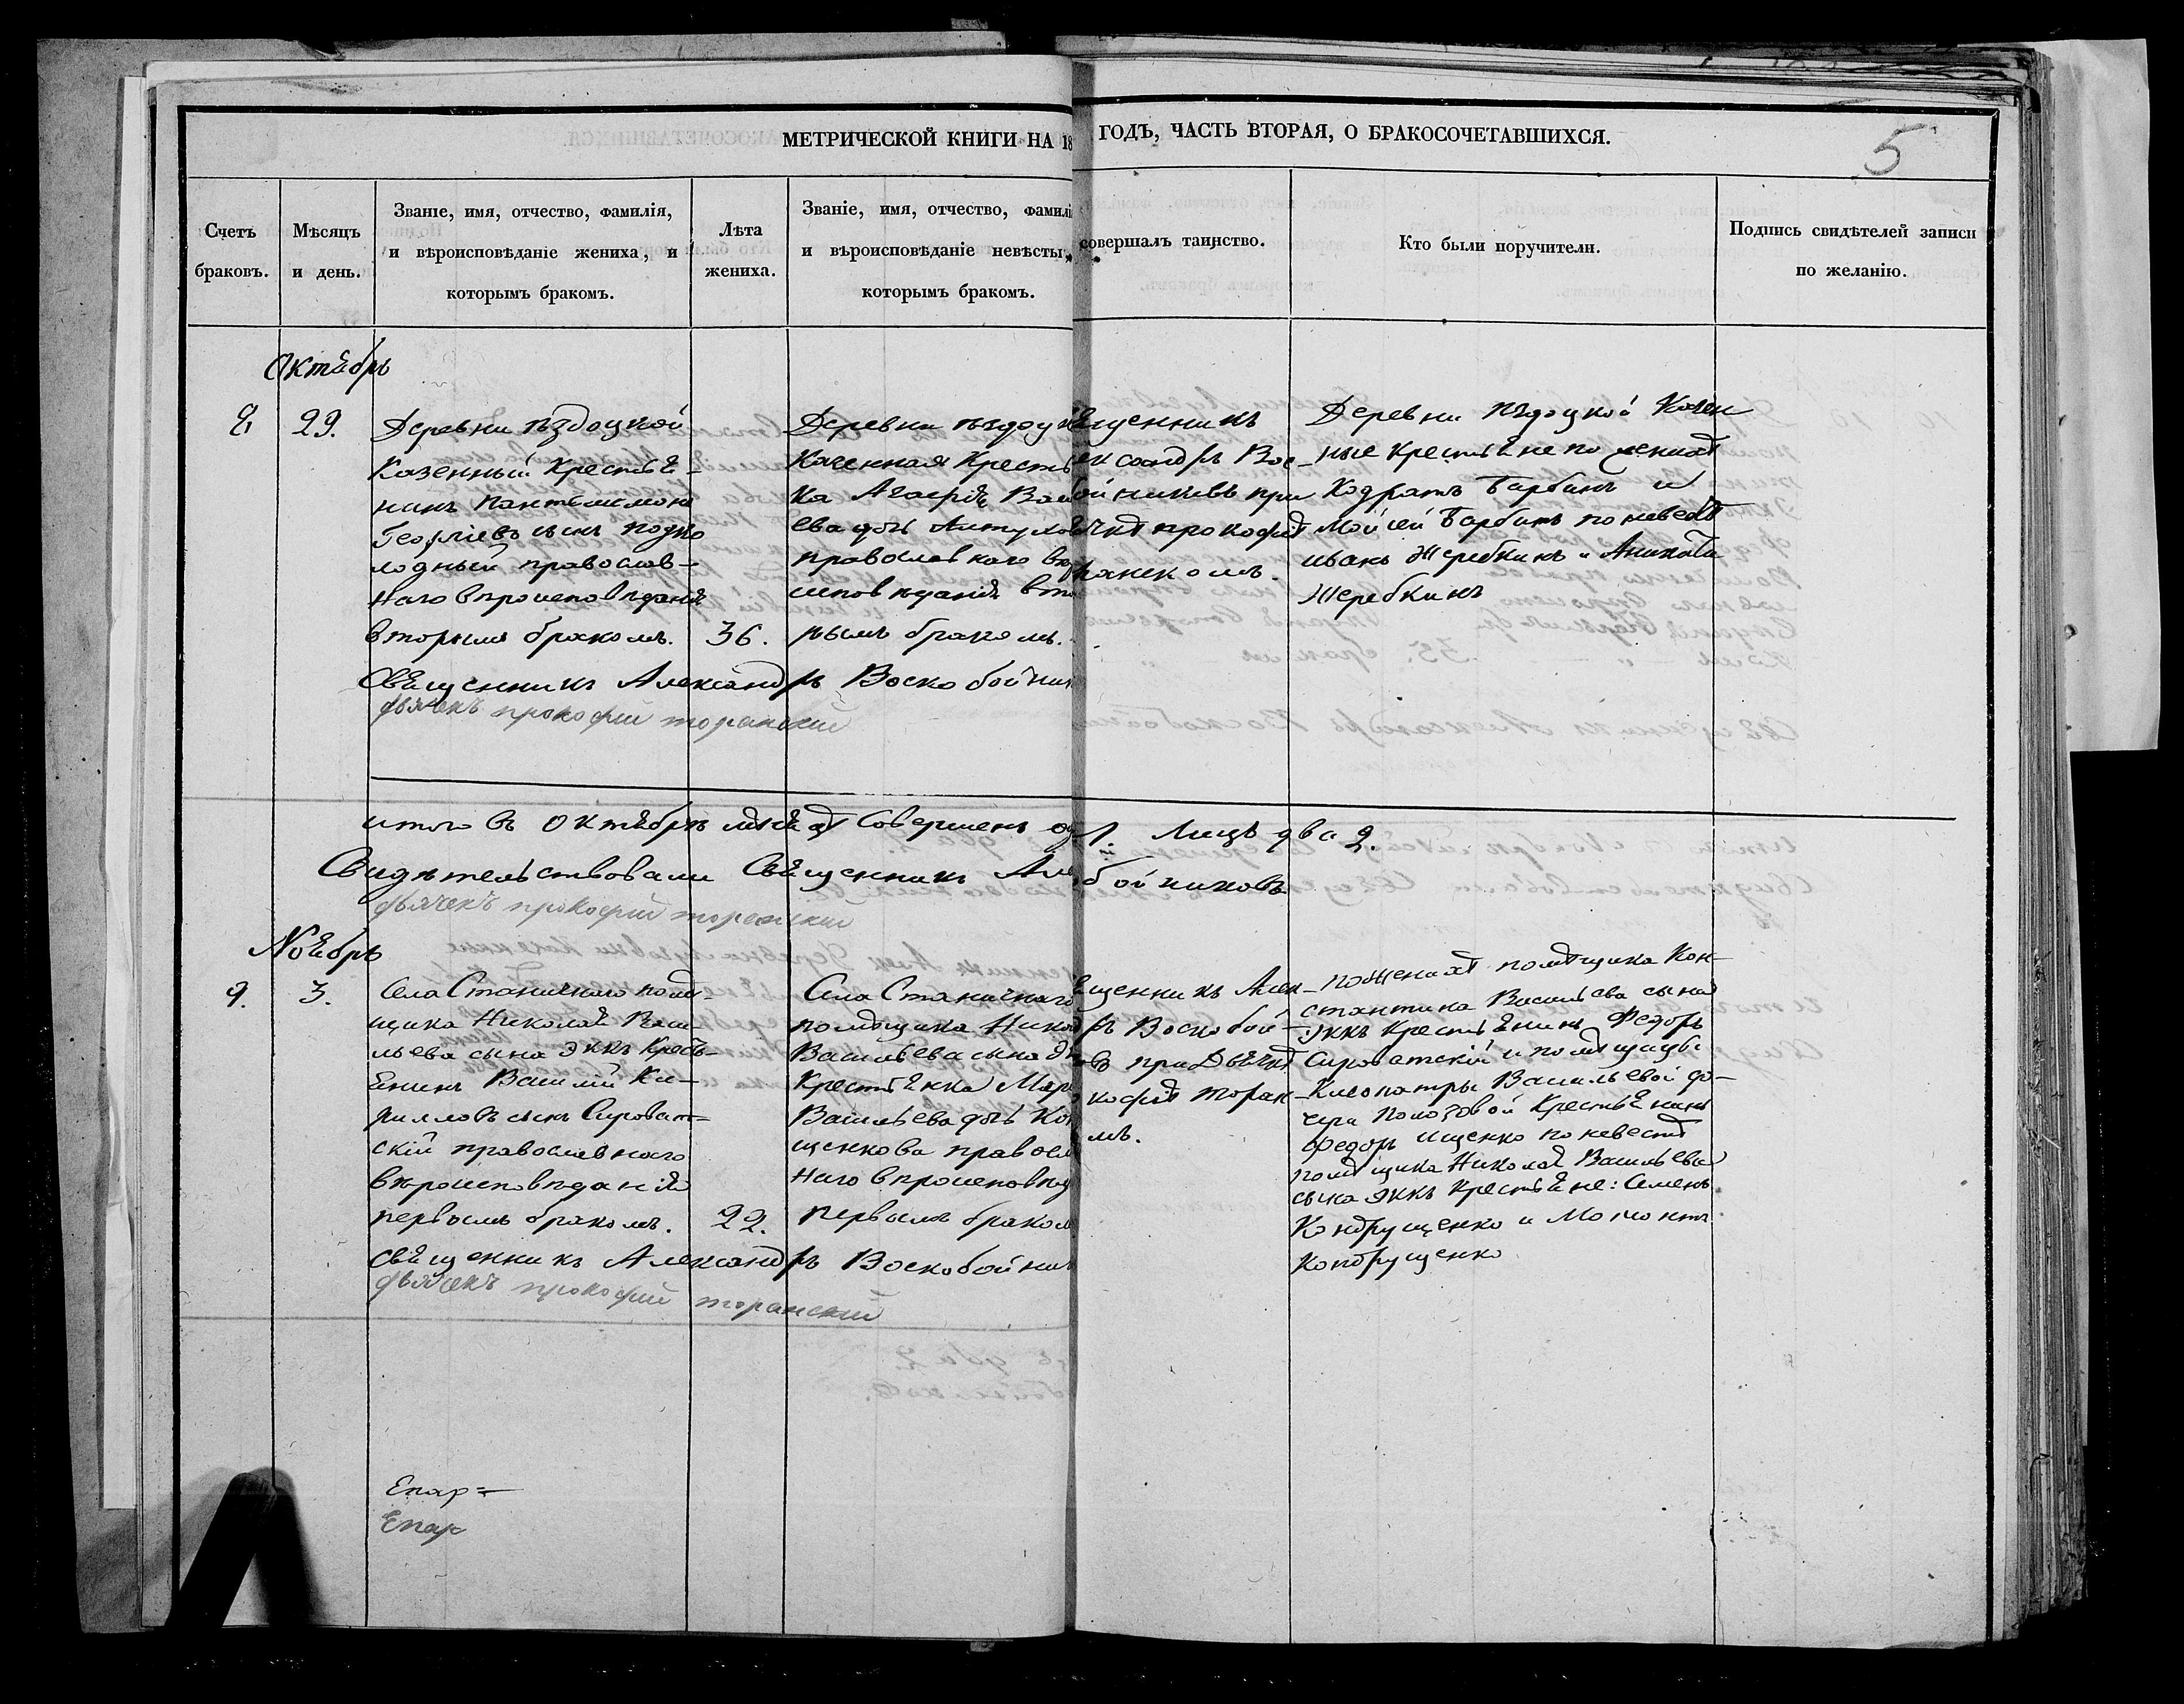 МЕТРИЧЕСКОЙ КНИГИ НА 18 ГОДЪ, ЧАСТЬ ВТОРАЯ, О БРАКОСОЧЕТАВШИХСЯ.
5
Счетъ
браковъ.
Мѣсяцъ
и день.
Званіе, имя, отчество, фамилія,
и вѣроисповѣданіе жениха, и
которымъ бракомъ.
Лѣта
жениха.
Званіе, имя, отчество, фамилі
и вѣроисповѣданіе невѣсты,
которымъ бракомъ.
совершалъ таинство.
Кто были поручители.
Подпись свидѣтелей записи
по желанію.
Октябрь
29.
Деревни
Казенный Крестья-
нинъ Пантелимонъ
Георгіевъ сынъ
православ-
наго вѣроисповѣданія
вторымъ бракомъ.
36.
Деревни
Казенная Кресть
ка
ева дочь
православнаго вѣ
исповѣданія вто
рымъ бракомъ.
ященникъ
ександръ Вос-
бойниковъ при
ячкѣ прокофіѣ
Деревни Казен
ные крестьяне по женихѣ
Кодратъ Барбинъ и
Моисей Барбинъ по невестѣ
иванъ Жеребкинъ и
Жеребкинъ
Священникъ Александръ Воскобойник
дьячекъ прокофій торанский
итого въ Октябрѣ мѣсяцѣ Совершенъ од 1. Лицъ два 2.
Свидѣтельствовали Священникъ Але бойниковъ
дьячекъ прокофій торанский
Ноябрь
9.
3.
Села Станичнаго помѣ-
щика Николая Васи-
льева сына Крест-
янинъ Василій Ки-
рилловъ сынъ Сироват-
скій православнаго
вѣроисповѣданія
первымъ бракомъ.
22.
Села Станичнаго
помѣщика Никол
Васильева сына
Крестьянка Мар
Васильева дочь Кон
щенкова правосл
наго вѣроисповѣд
первымъ браком
ященникъ Алек-
ръ Воскобой-
въ при Дьячкѣ
кофіѣ торан-
мъ.
по женихѣ помѣщика Кон-
стантина Васильева сына
крестьянинъ Федоръ
Сироватскій и помѣщицы
Клеопатры Васильевой до-
чери Полозовой Крестьянинъ
Федоръ Ищенко по невестѣ
помѣщика Николая Васильева
сына крестьяне: Семенъ
Кондрущенко и Мамонтъ
Кондрущенко
Священникъ Александръ Воскобойник
дьячекъ прокофій торанский
Епар=
Епар